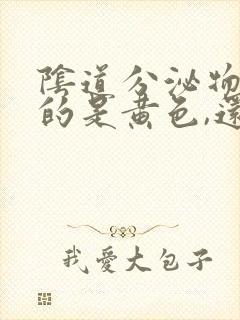 陰道分泌物
的是黃色,還
我愛大包子